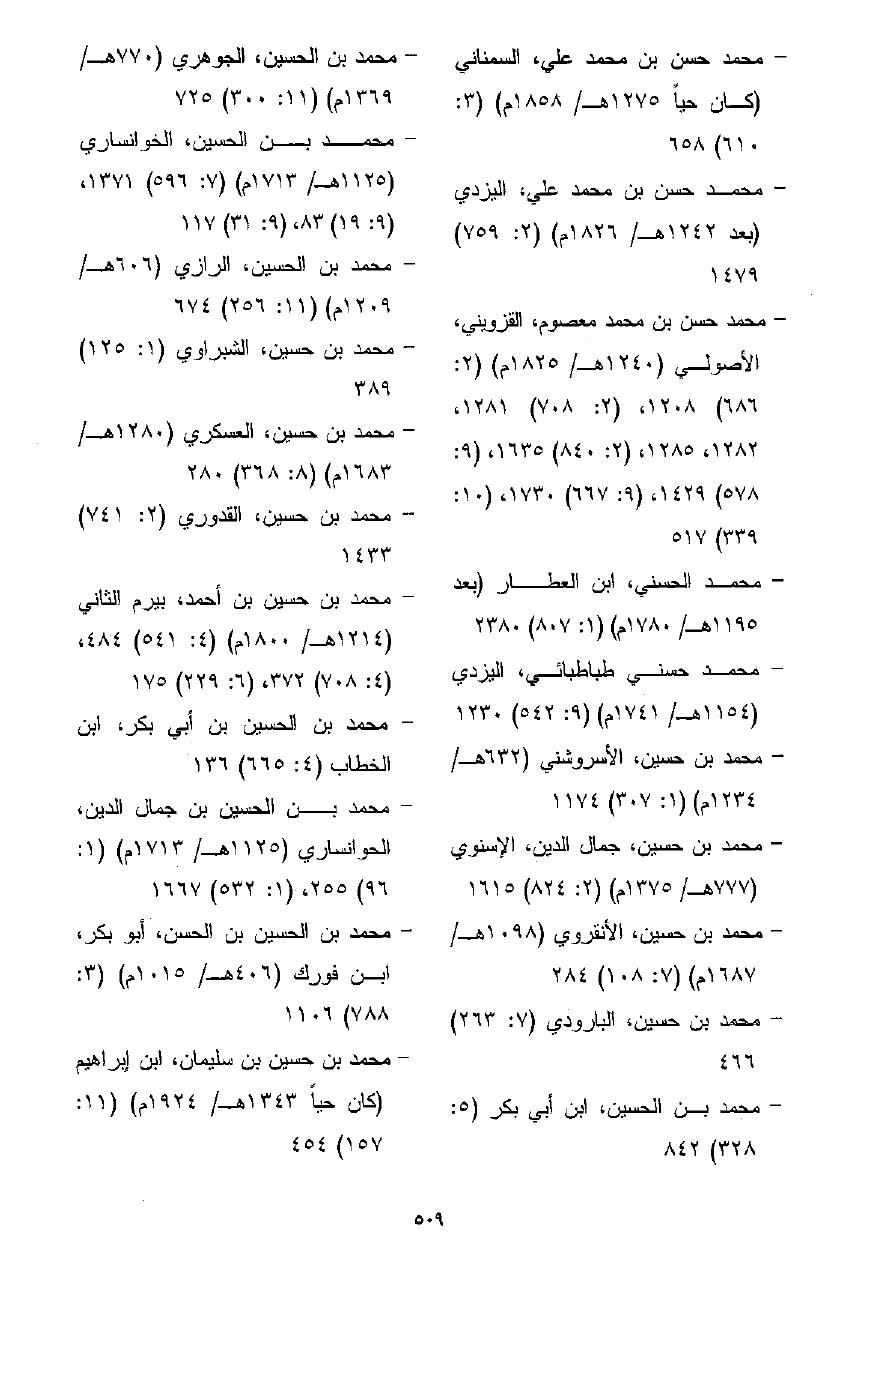 - محمد حسن بن محمد علي، السمناني
(كان حياً ١٢٧٥هـ/ ١٨٥٨م) (٣:
٦١٠) ٦٥٨
- محمد حسن بن محمد علي، اليزدي
(بعد ١٢٤٢هـ/ ١٨٢٦م) (٢: ٧٥٩)
١٤٧٩
- محمد حسن بن محمد معصوم، القزويني،
الأصولي (١٢٤٠هـ/ ١٨٢٥م) (٢:
٦٨٦) ١٢٠٨، (٢: ٧٠٨) ١٢٨١،
١٢٨٢، ١٢٨٥، (٢: ٨٤٠) ١٦٣٥، (٩:
٥٧٨) ١٤٢٩، (٩: ٦٦٧) ١٧٣٠، (١٠:
٣٣٩) ٥١٧
- محمد الحسني، ابن العطار (بعد
١١٩٥هـ/ ١٧٨٠م) (١: ٨٠٧) ٢٣٨٠
- محمد حسني طباطبائي، اليزدي
(١١٥٤هـ/ ١٧٤١م) (٩: ٥٤٢) ١٢٣٠
- محمد بن حسين، الأسروشني (٦٣٢هـ/
١٢٣٤م) (١: ٣٠٧) ١١٧٤
- محمد بن حسين، جمال الدين، الإسنوي
(٧٧٧هـ/ ١٣٧٥م) (٢: ٨٢٤) ١٦١٥
- محمد بن حسين، الأنقروي (١٠٩٨هـ/
١٦٨٧م) (٧: ١٠٨) ٢٨٤
- محمد بن حسين، البارودي (٧: ٢٦٣)
٤٦٦
- محمد بن الحسين، ابن أبي بكر (٥:
٣٢٨) ٨٤٢
- محمد بن الحسين، الجوهري (٧٧٠هـ/
١٣٦٩م) (١١: ٣٠٠) ٧٢٥
- محمد بن الحسين، الخوانساري
(١١٢٥هـ/ ١٧١٣م) (٧: ٥٩٦) ١٣٧١،
(٩: ١٩) ٨٣، (٩: ٣١) ١١٧
- محمد بن الحسين، الرازي (٦٠٦هـ/
١٢٠٩م) (١١: ٢٥٦) ٦٧٤
- محمد بن حسين، الشبراوي (١: ١٢٥)
٣٨٩
- محمد بن حسين، العسكري (١٢٨٠هـ/
١٦٨٣م) (٨: ٣٦٨) ٢٨٠
- محمد بن حسين، القدوري (٢: ٧٤١)
١٤٣٣
- محمد بن حسين بن أحمد، بيرم الثاني
(١٢١٤هـ/ ١٨٠٠م) (٤: ٥٤١) ٤٨٤،
(٤: ٧٠٨) ٣٧٢، (٦: ٢٢٩) ١٧٥
- محمد بن الحسين بن أبي بكر، ابن
الخطاب (٤: ٦٦٥) ١٣٦
- محمد بن الحسين بن جمال الدين،
الحوانساري (١١٢٥هـ/ ١٧١٣م) (١:
٩٦) ٢٥٥، (١: ٥٣٢) ١٦٦٧
- محمد بن الحسين بن الحسن، أبو بكر،
ابن فورك (٤٠٦هـ/ ١٠١٥م) (٣:
٧٨٨) ١١٠٦
- محمد بن حسين بن سليمان، ابن إبراهيم
(كان حياً ١٣٤٣هـ/ ١٩٢٤م) (١١:
١٥٧) ٤٥٤
٥٠٩